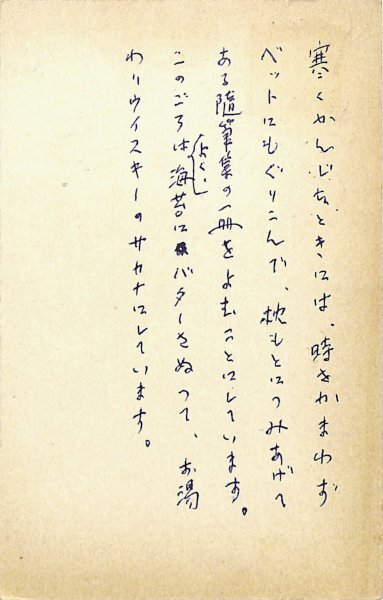 寒くかんじるときには、時をかまわず
ベットにもぐりこんで、枕もとにつみあげて
ある随筆集の一冊をよむことにしています。
このごろはよく、海苔にバターをぬって、お湯
わりウイスキーのサカナにしています。